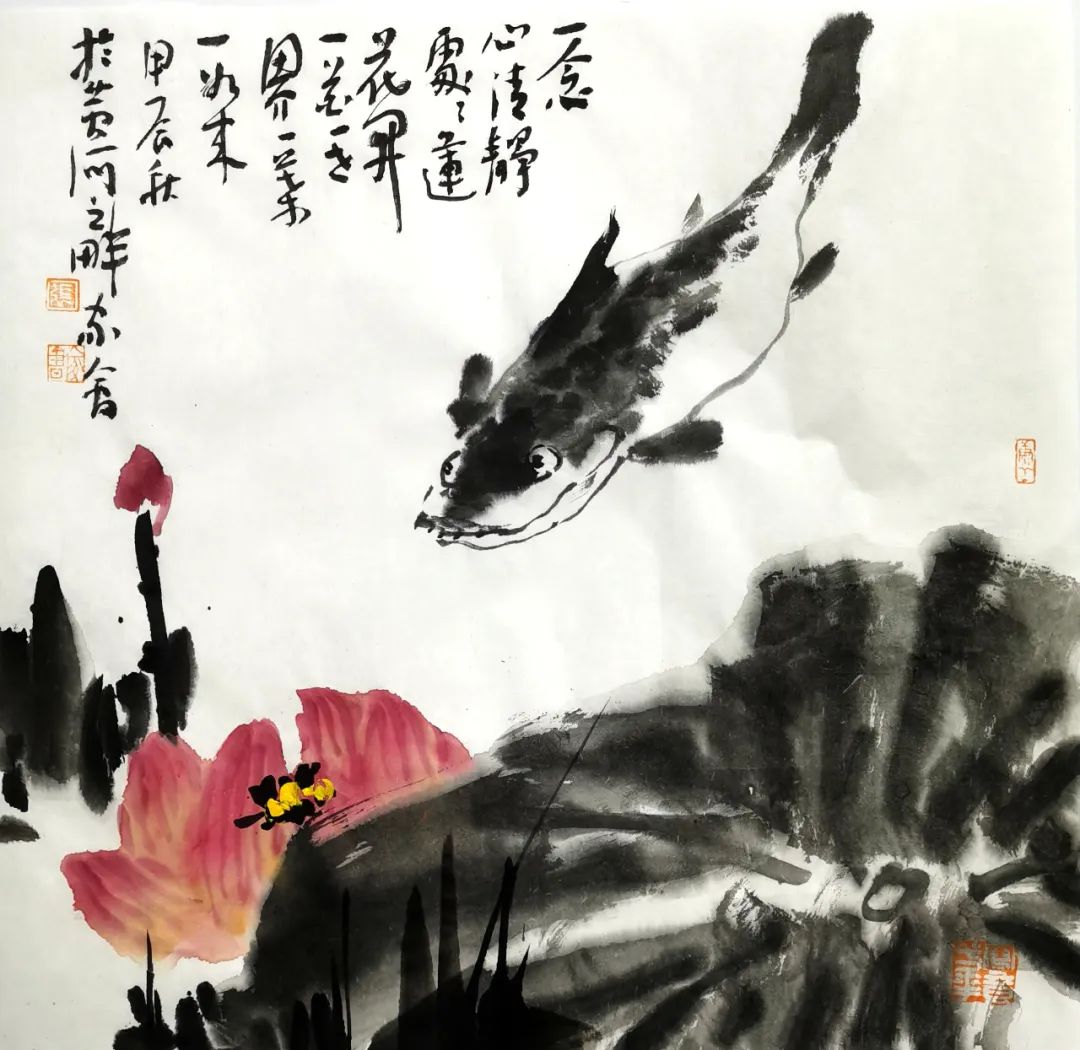 一念
心清靜
處〻蓮
花開
一花一世
界一葉
一如来
甲辰秋
於黄河之畔家會